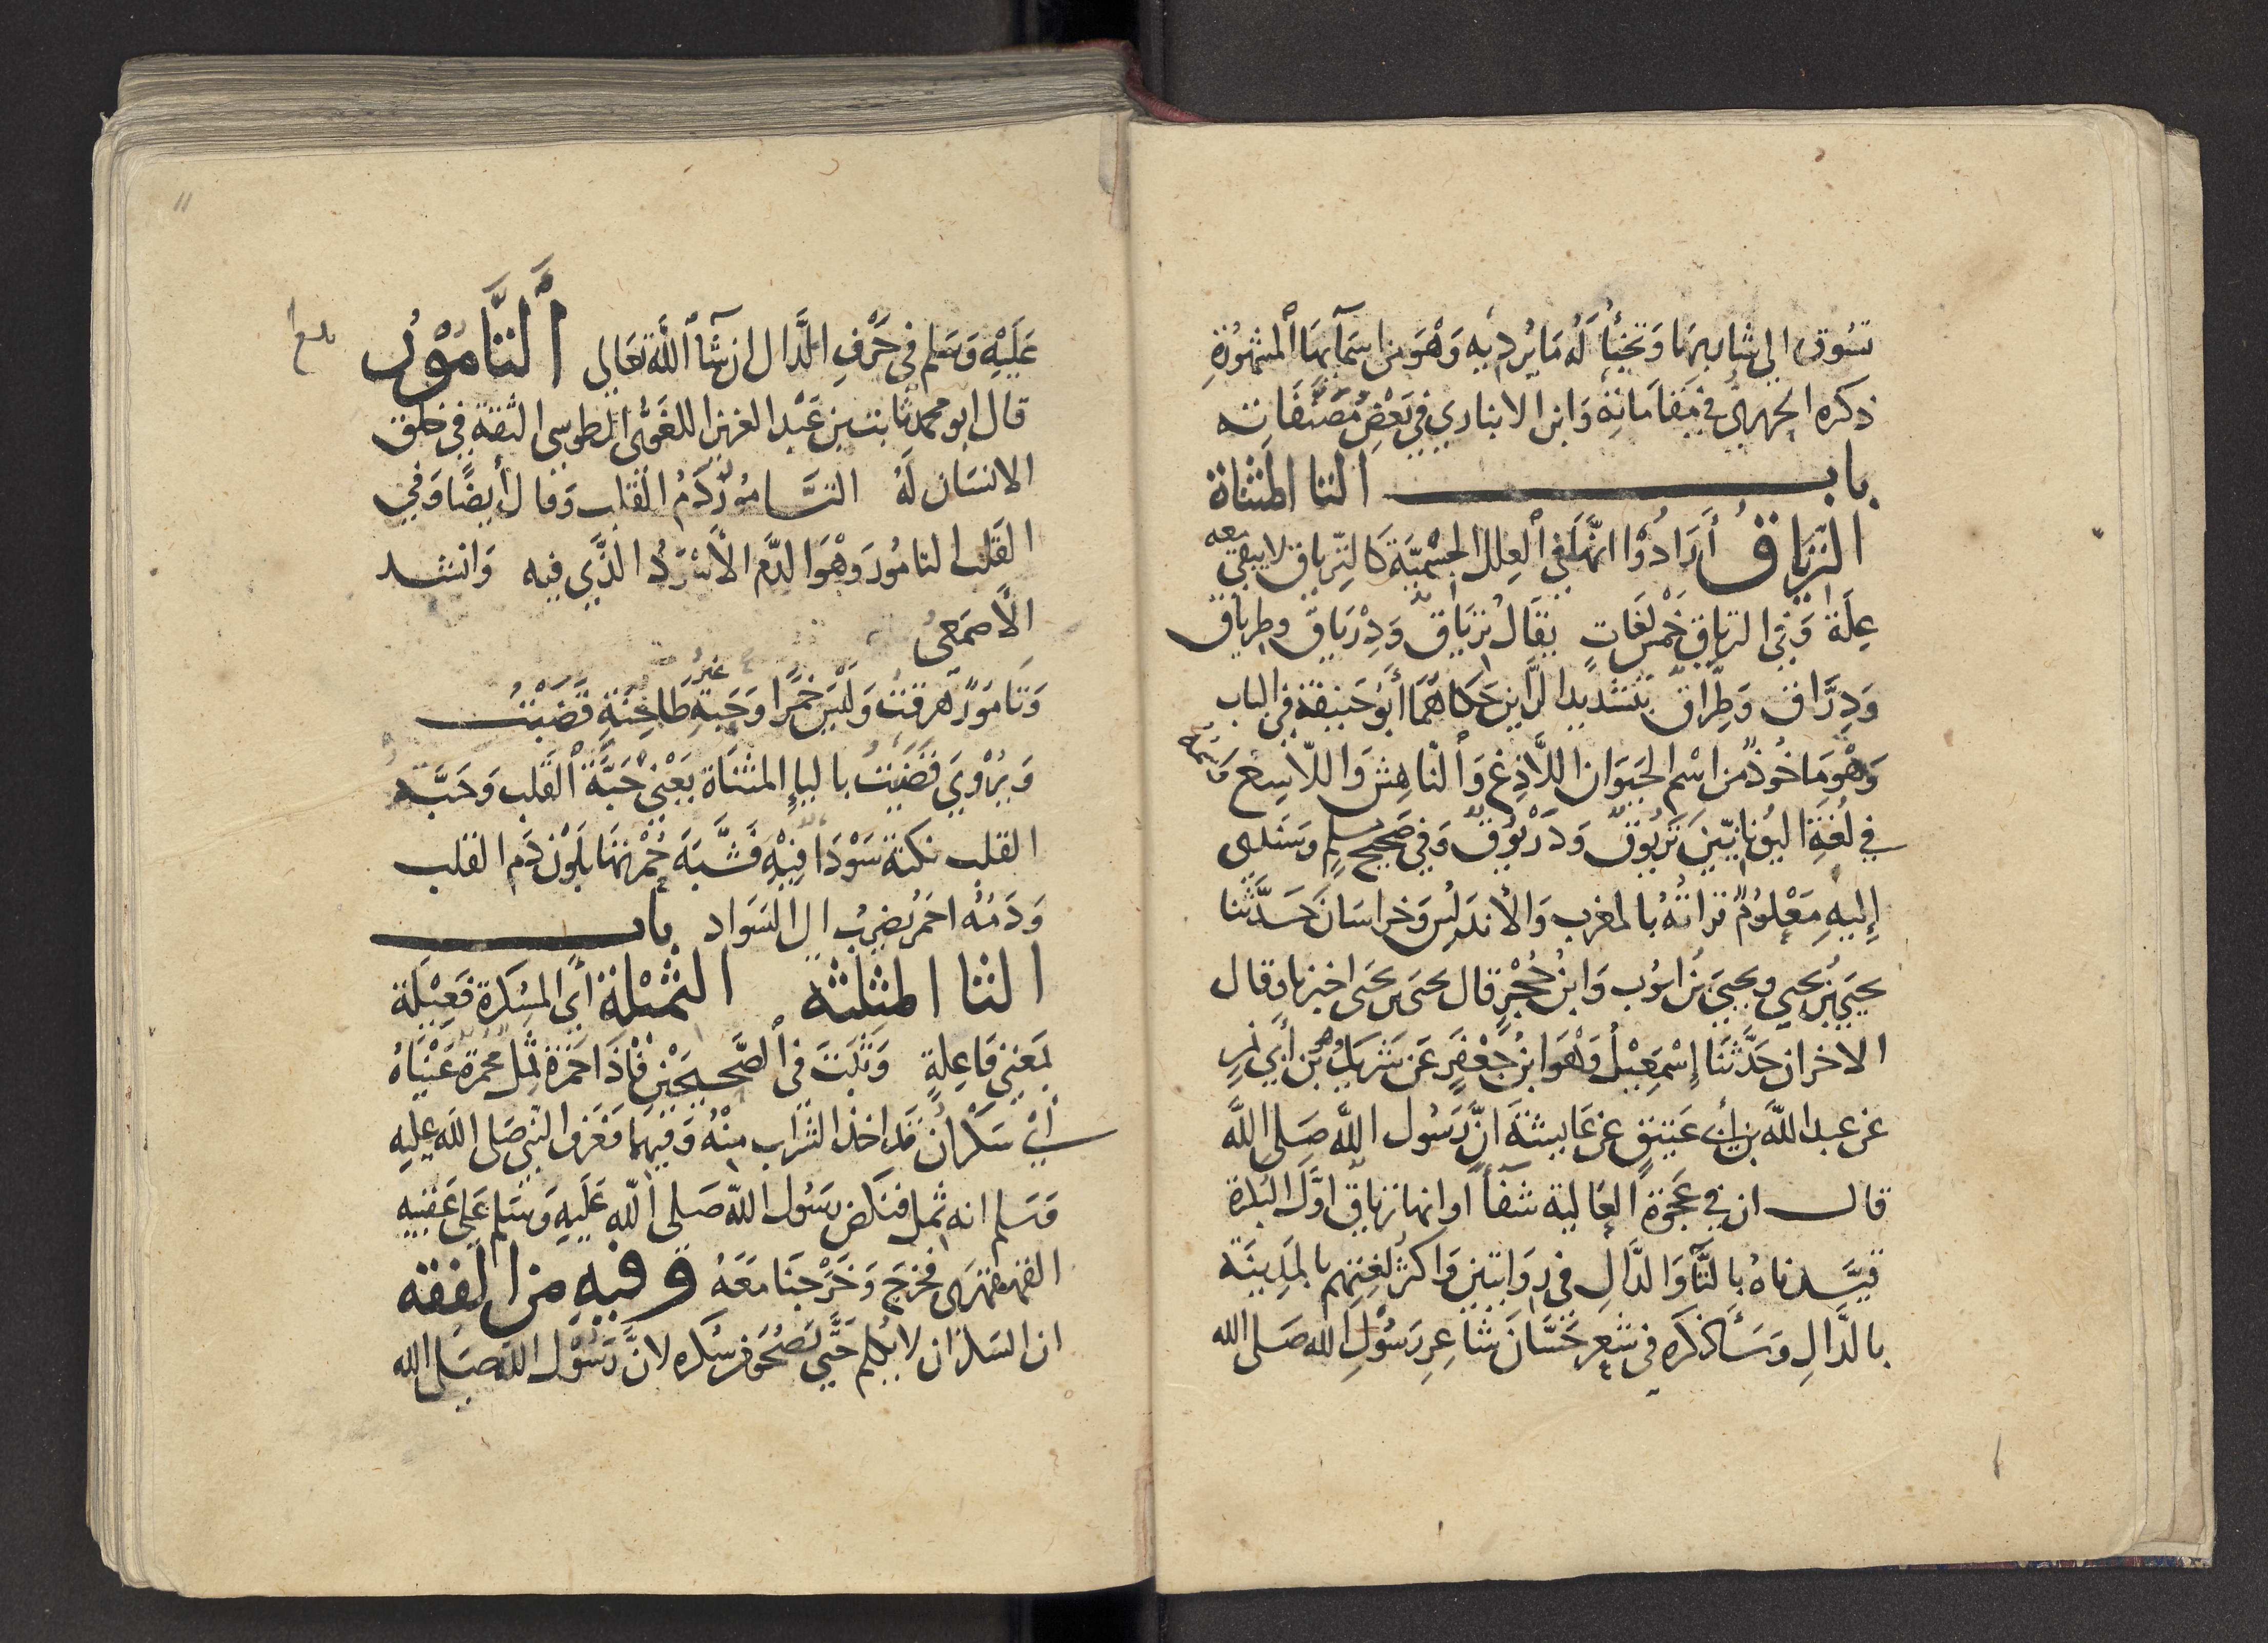 تسوق الى شاربها وتخبأ له ما يرد به وهو من اسمآيها المشهورة
ذكره الجهري في مقاماته وابن الانباري في بعض مصنفاته
باب التا المثناة
الترياق أرادوا انها في العلل الجسمية كالترياق لا يبقى معه
علة وفي الترياق خمس لغات يقال ترياق ودرياق وطرياق
ودراق وطراق بتشديد الراين حكاهما أبو حنيفة في الباب
وهو ماخوذ من اسم الحيوان اللاذغ والناهش واللاسع واسمه
في لغة اليونانيين تريوق ودريوق وفي صحيح مسلم وسندي
إليه معلوم تراته بالمغرب والأندلس وخراسان حدثنا
يحيى بن يحيى ويحيى بن ايوب وابن حجر قال يحيى بن يحيى اخبرنا وقال
الاخران حدثنا إسمعيل وهو ابن جعفر عن شريك وهو بن أبي نمر
عن عبد الله بن أبي عتيق عن عايشة ان رسول الله صلى الله
قال ان في عجوة العالية شفآ او انها ترياق اول البكرة
قيدناه بالتآ والدال في روايتين واكثر لغتهم بالمدينة
بالدال وسأذكره في شعر حسان شاعر رسول الله صلى الله
11
عليه وسلم في حرف الدال ان شآ الله تعالى التامور
بلغ
قال ابو محمد ثابت بن عبد العزيز اللغوي الطوسي الثقة في خلق
الانسان له التامور دم القلب وقال أيضا وفي
القلب التامور وهو الدم الأسود الذي فيه وانشد
الأصمعي
وتامور هرقت وليس خمرا وحبة غير طاحنة قضبت
ويروي قضيت باليإ المثناة يعني حبة القلب وحبة
القلب نكتة سودا فيه فشبه خمرتها بلون دم القلب
ودمه احمر يضرب ال السواد باب
الثا المثلثة الثميلة أي المسكرة فعيلة
بمعنى فاعلة وثبت في الصحيحين فإذا حمزة ثمل محمرة عيناه
أي سكران قد اخذ الشراب منه وفيهما فعرف النبي صلى الله عليه
وسلم انه ثمل فنكص رسول الله صلى الله عليه وسلم على عقبيه
القهقهرى فخرج وخرجنا معه وفيه من الفقه
ان السكران لا يكلم حتى يصحو من سكره لان رسول الله صلى الله